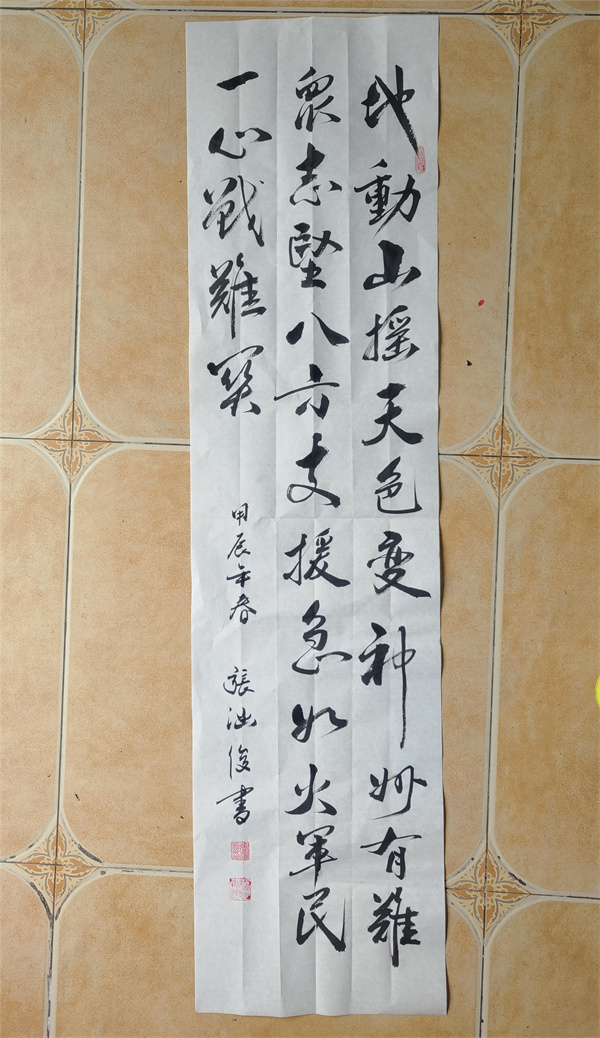 地動山摇天色变神州有難
衆志堅八方支援急如火军民
一心戰難关
甲辰年春 張泏俊書